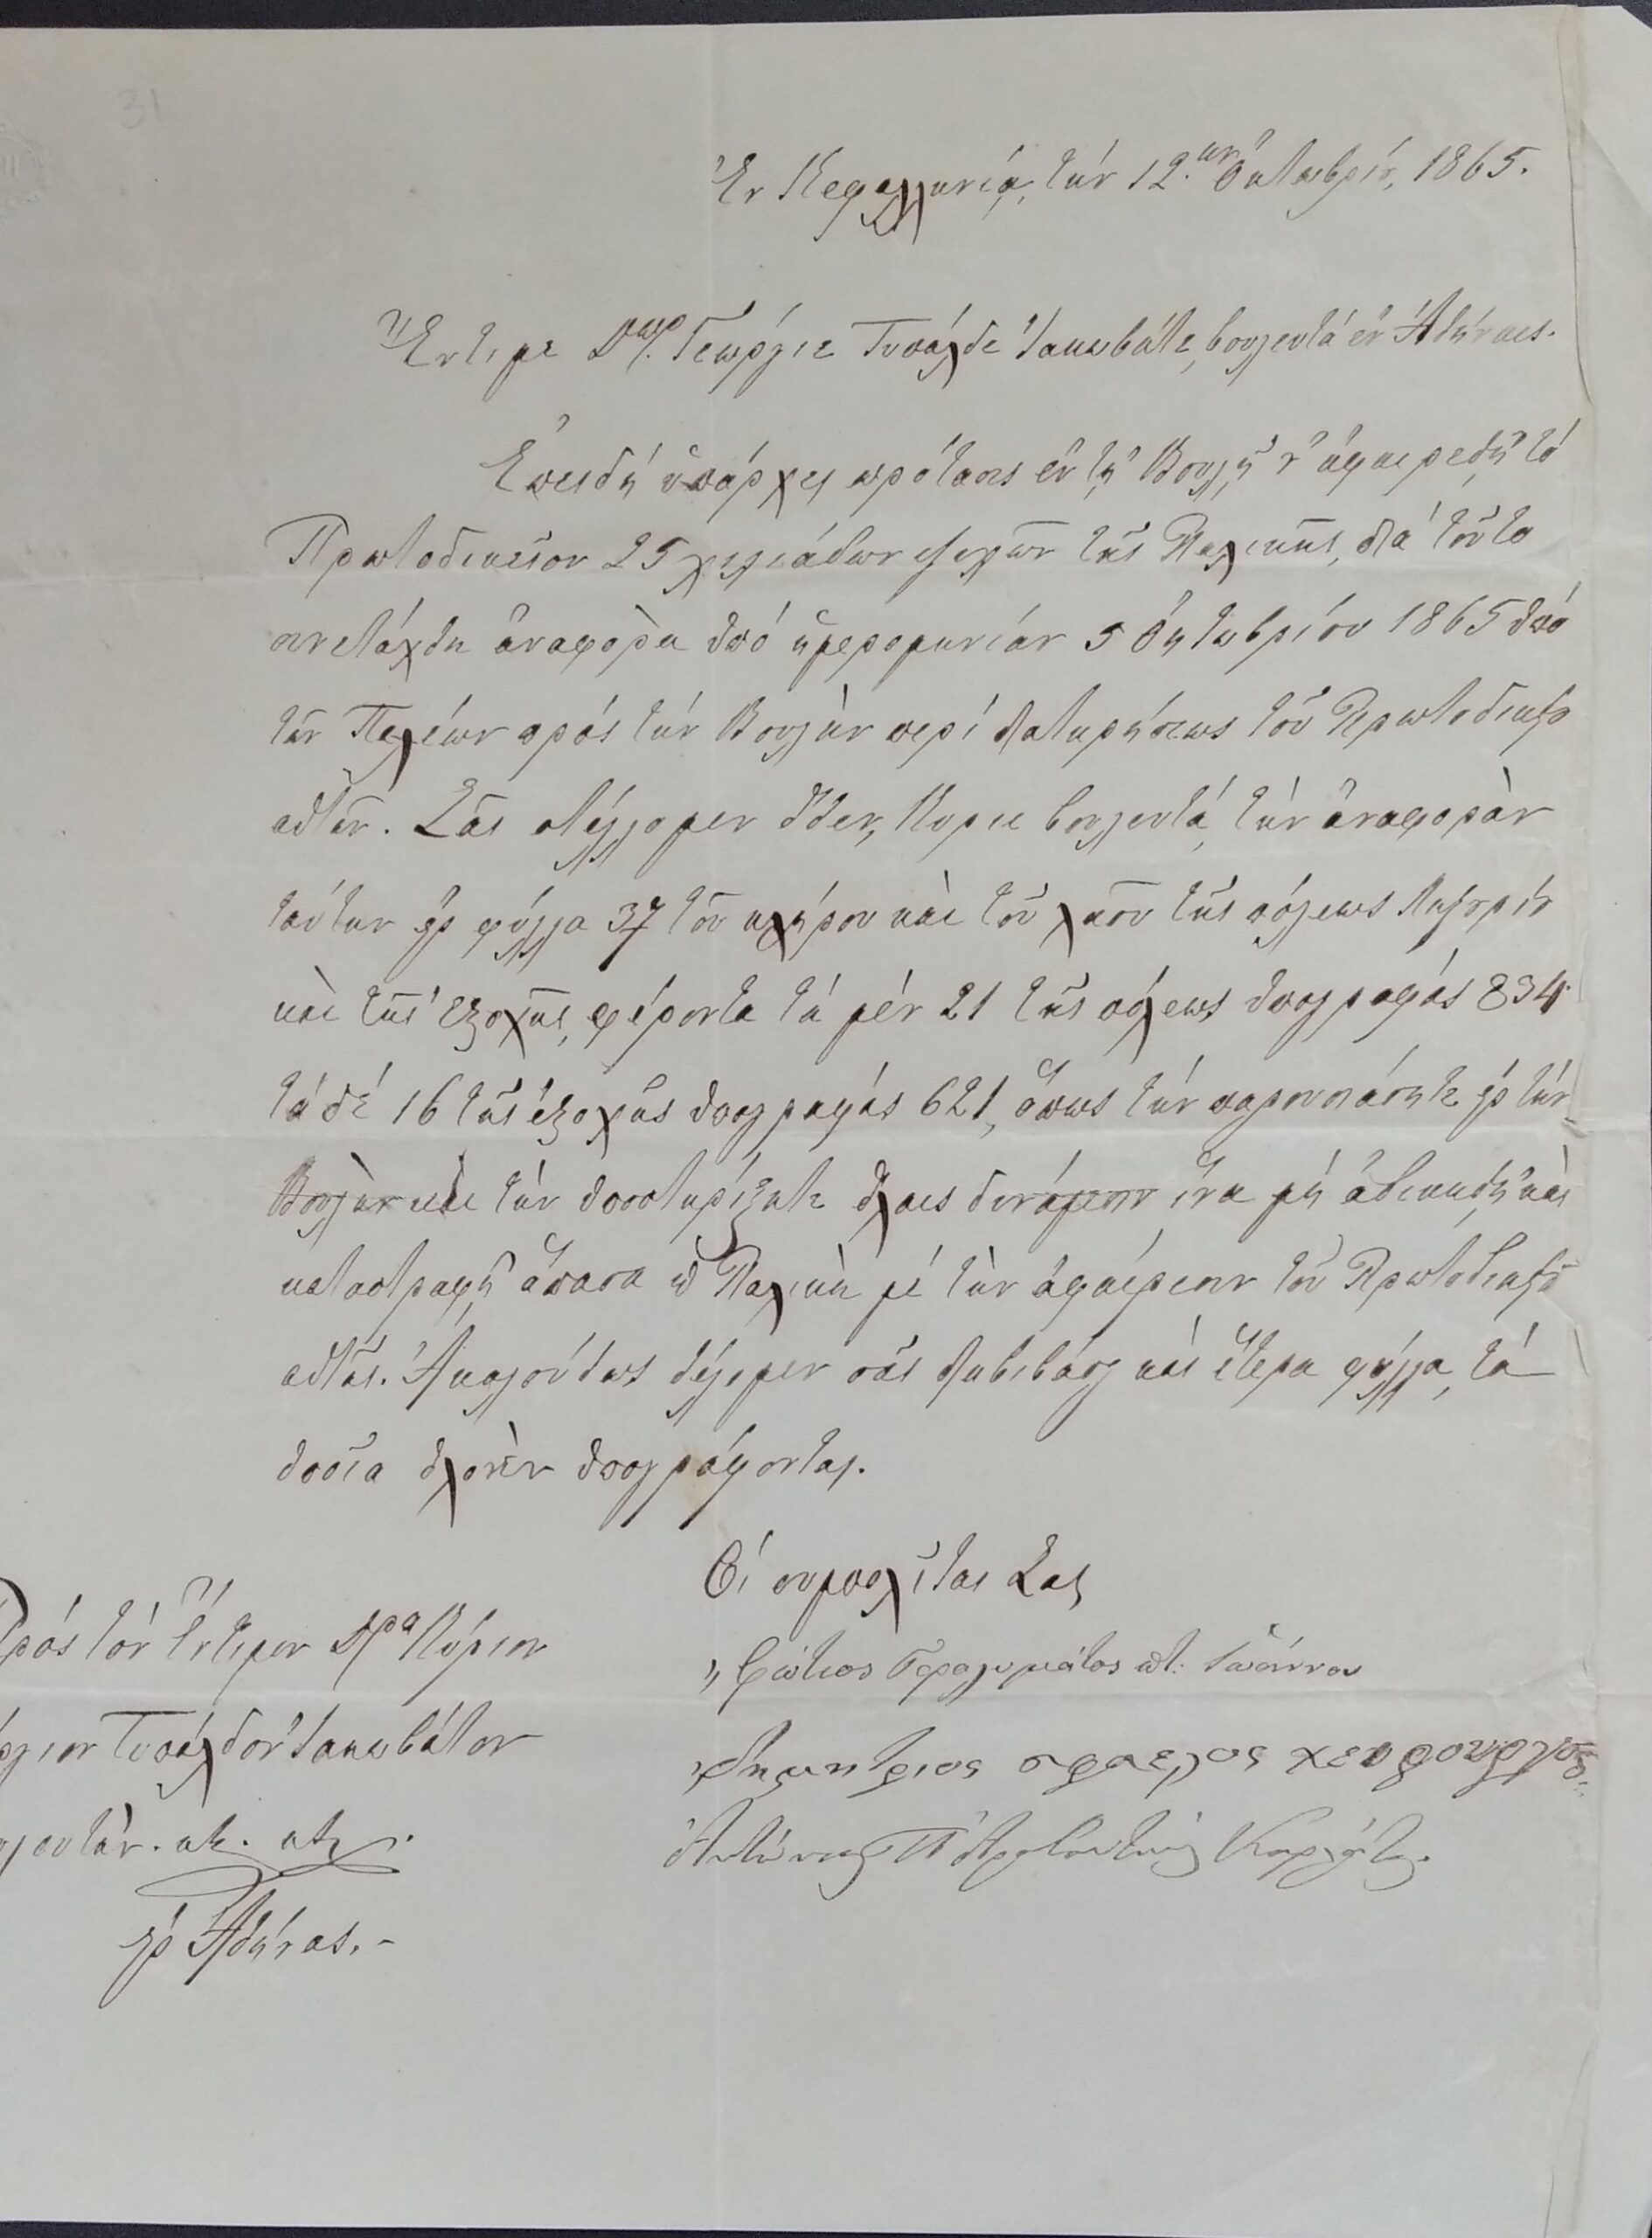 31
Ἐν Κεφαλληνίᾳ, τὴν 12.ην Ὀκτωβρίου, 1865.
Ἔντιμε Δωρ. Γεώργιε Τυπάλδε Ἰακωβάτε, βουλευτά ἐν Ἀθήναις.
Ἐπειδὴ ὑπάρχει πρότασις ἐν τῇ Βουλῇ ν' ἀφαιρεθῇ τὸ
Πρωτοδικεῖον 25 χιλιάδων ψυχῶν τῆς Παλικῆς, διὰ τοῦτο
συνετάχθη ἀναφορὰ ὑπὸ ἡμερομηνίαν 5 Ὀκτωβρίου 1865 ὑπὸ
τῶν Παλέων πρὸς τὴν Βουλὴν περὶ διατηρήσεως τοῦ Πρωτοδικείου
αὐτῶν. Σᾶς στέλλομεν ὅθεν, Κύριε βουλευτά, τὴν ἀναφορὰν
ταύτην εἰς φύλλα 37 τοῦ κλήρου καὶ τοῦ λαοῦ τῆς πόλεως Ληξουρίου
καὶ τῆς ἐξοχῆς, φέροντα τὰ μὲν 21 τῆς πόλεως ὑπογραφὰς 834
τὰ δὲ 16 τῆς ἐξοχῆς ὑπογραφὰς 621, ὅπως τὴν παρουσιάσητε εἰς τὴν
Βουλὴν καὶ τὴν ὑποστηρίξητε ὅλαις δυνάμεσιν ἵνα μὴ ἀδικηθῇ καὶ
καταστραφῇ ἅπασα ἡ Παλικὴ μὲ τὴν ἀφαίρεσιν τοῦ Πρωτοδικείου
αὐτῆς. Ἀκολούθως θέλομεν σᾶς διαβιβάσῃ καὶ ἕτερα φύλλα, τὰ
ὁποῖα ὁλονὲν ὑπογράφονται.
Οἱ συμπολῖται Σας
Πρὸς τὸν Ἔντιμον Δρα Κύριον
Τυπάλδον Ἰακωβάτον
κτ. κτλ.
εἰς Ἀθήνας.-
" Φώτιος ποτ. Ἰωάννου
Δημήτριος χειρουργὸς
Ἀντώνιος